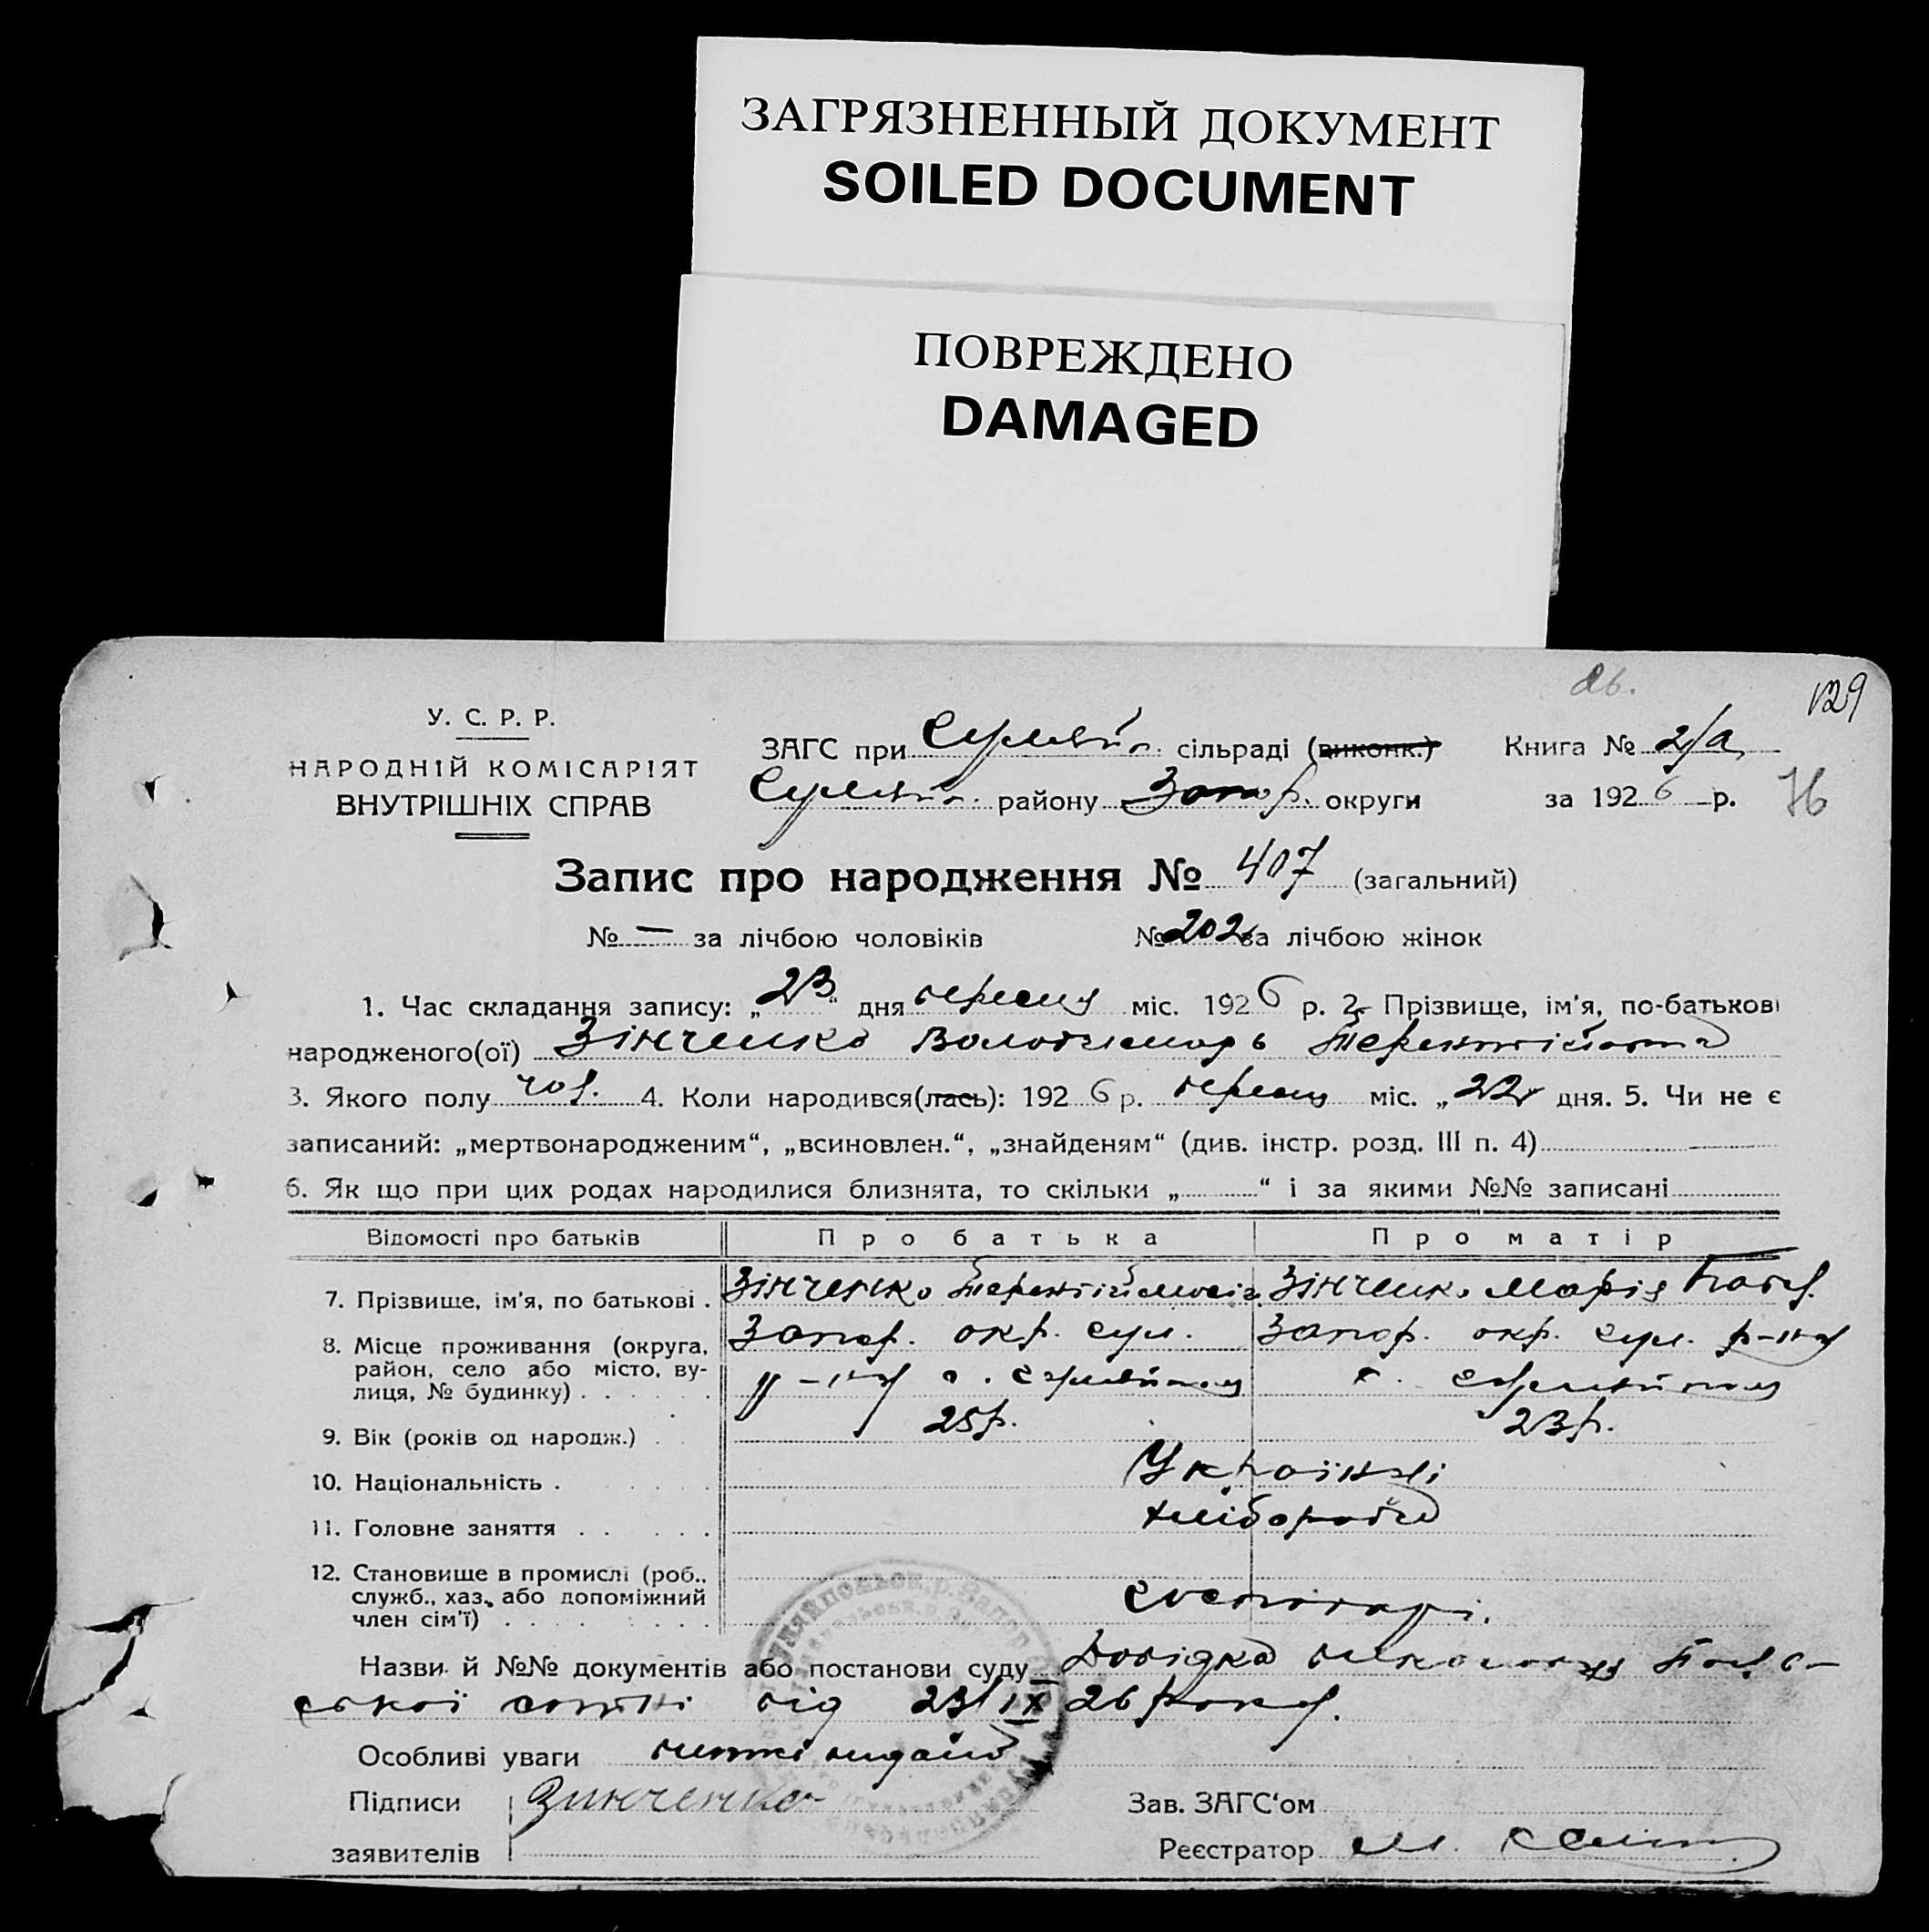 ЗАГРЯЗНЕННЫЙ ДОКУМЕНТ
SOILED DOCUMENT
ПОВРЕЖДЕНО
DAMAGED
129
У. С. Р. Р.
НАРОДНІЙ КОМІСАРІЯТ
ВНУТРІШНІХ СПРАВ
ЗАГС при сільраді (виконк.) Книга № 2/а
району Запор. округи за 1926 р. 76
Запис про народження № 407 (загальний)
№ — за лічбою чоловіків № 202 за лічбою жінок
1. Час складання запису: „23“ дня вересня міс. 1926 р. 2. Прізвище, ім'я, по-батькові
народженого(ої) Зінченко Володимиръ
3. Якого полу чол. 4. Коли народився(лась): 1926 р. вересня міс. „22 дня. 5. Чи не є
записаний: „мертвонародженим“, „всиновлен.“, „знайденям“ (див. інстр. розд. III п. 4)
6. Як що при цих родах народилися близнята, то скільки „ “ і за якими №№ записані
Відомості про батьків Про батька Про матір
7. Прізвище, ім'я, по батькові . Зінченко Зінченко Марія
8. Місце проживання (округа, Запор. окр. Запор. окр. р-ну
район, село або місто, ву-
лиця, № будинку) . . . . . р-ну с. с.
9. Вік (років од народж.) . . 25 р. 23 р.
10. Національність . . . . . Українці
11. Головне заняття . . . . . хлібороби
12. Становище в промислі (роб.,
служб., хаз., або допоміжний
член сім'ї) . . . . . . . господарі.
Назви й №№ документів або постанови суду Довідка
ської сотні від 23/IX 26 року.
Особливі уваги
Підписи Зинченко Зав. ЗАГС'ом
заявителів Реєстратор М.